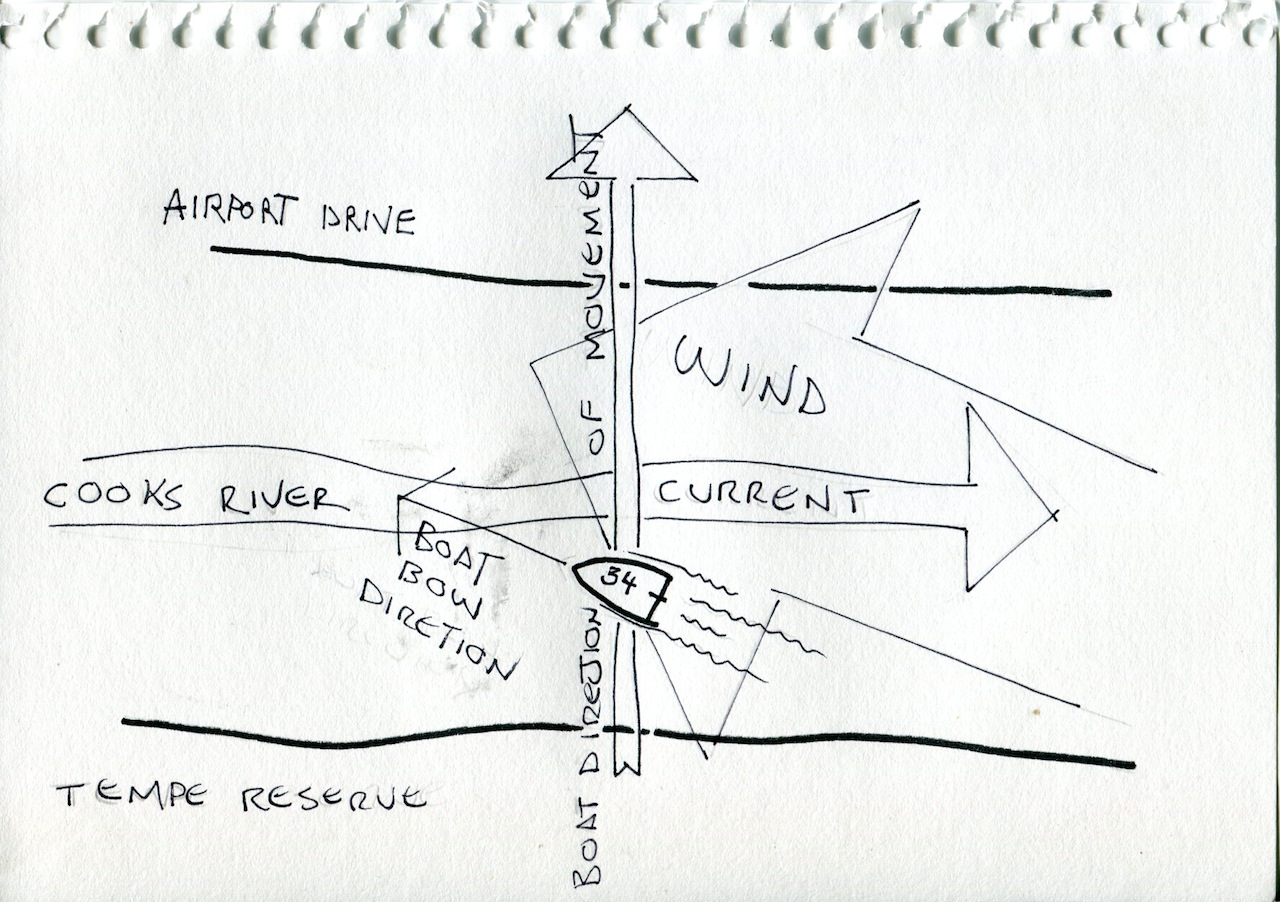 AIRPORT DRIVE
WIND
COOKS RIVER
CURRENT
BOAT
BOW
DIRETION
34
BOAT DIRECTION OF MOVEMENT
TEMPE RESERVE